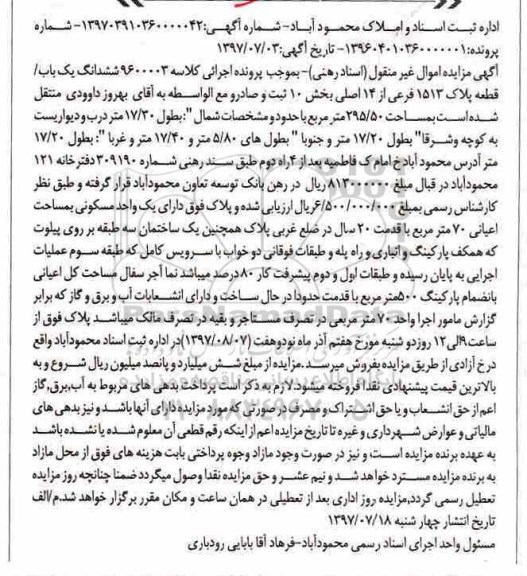 اداره ثبت اسناد و املاک محمود آباد- شماره آگهی:۱۳۹۷۰۳۹۱۰۳۶۰۰۰۰۰۴۲- شماره
پرونده:۱۳۹۶۰۴۰۱۰۳۶۰۰۰۰۰۰۱- تاریخ آگهی:۱۳۹۷/۰۷/۰۳
آگهی مزایده اموال غیر منقول (اسناد رهنی)- بموجب پرونده اجرائی کلاسه ۹۶۰۰۰۰۳ ششدانگ یک باب/
قطعه پلاک ۱۵۱۳ فرعی از ۱۴ اصلی بخش ۱۰ ثبت و صادرو مع الواسطه به آقای بهروز داوودی منتقل
شده است بمساحت ۲۹۵/۵۰ متر مربع با حدود و مشخصات شمال": بطول ۱۷/۳۰ متر درب و دیواریست
به کوچه وشرقا" بطول ۱۷/۲۰ متر و جنوبا " بطول های ۵/۸۰ متر و ۱۷/۴۰ متر و غربا ": بطول ۱۷/۲۰
متر آدرس محمود آباد خ امام ک فاطمیه بعد از ۴ راه دوم طبق سند رهنی شماره ۳۰۹۱۹۰ دفتر خانه ۱۲۱
محمودآباد در قبال مبلغ ۸۱۳۰۰۰۰۰۰ ریال در رهن بانک توسعه تعاون محمودآباد قرار گرفته و طبق نظر
کارشناس رسمی بمبلغ ۶/۵۰۰/۰۰۰/۰۰۰ ریال ارزیابی شده و پلاک فوق دارای یک واحد مسکونی بمساحت
اعیانی ۷۰ متر مربع با قدمت ۲۰ سال در ضلع غربی پلاک همچنین یک ساختمان سه طبقه بر روی پیلوت
که همکف پارکینگ و انباری و راه پله و طبقات فوقانی دو خواب با سرویس کامل که طبقه سوم عملیات
اجرایی به پایان رسیده و طبقات اول و دوم پیشرفت کار ۸۰ درصد میباشد نما آجر سفال مساحت کل اعیانی
بانضمام پارکینگ ۵۰۰ متر مربع با قدمت حدودا در حال ساخت و دارای انشعابات آب و برق و گاز که برابر
گزارش مامور اجرا واحد ۷۰ متر مربعی در تصرف مستاجر و بقیه در تصرف مالک میباشد پلاک فوق از
ساعت ۹ الی ۱۲ روز دو شنبه مورخ هفتم آذر ماه نود و هفت (۱۳۹۷/۰۸/۰۷) در اداره ثبت اسناد محمودآباد واقع
در خ آزادی از طریق مزایده بفروش میرسد. مزایده از مبلغ شش میلیارد و پانصد میلیون ریال شروع و به
بالاترین قیمت پیشنهادی نقدا فروخته میشود لازم به ذکر است پرداخت بدهی های مربوط به آب،برق،گاز
اعم از حق انشعاب و یا حق اشتراک و مصرف در صورتی که مورد مزایده دارای آنها باشد و نیز بدهی های
مالیاتی و عوارض شهرداری و غیره تا تاریخ مزایده اعم از اینکه رقم قطعی آن معلوم شده یا نشده باشد
به عهده برنده مزایده است و نیز در صورت وجود مازاد وجوه پرداختی بابت هزینه های فوق از محل مازاد
به برنده مزایده مسترد خواهد شد و نیم عشر و حق مزایده نقدا وصول میگردد ضمنا چنانچه روز مزایده
تعطیل رسمی گردد،مزایده روز اداری بعد از تعطیلی در همان ساعت و مکان مقرر برگزار خواهد شد.م/الف
تاریخ انتشار چهار شنبه ۱۳۹۷/۰۷/۱۸
مسئول واحد اجرای اسناد رسمی محمودآباد-فرهاد آقا بابایی رودباری